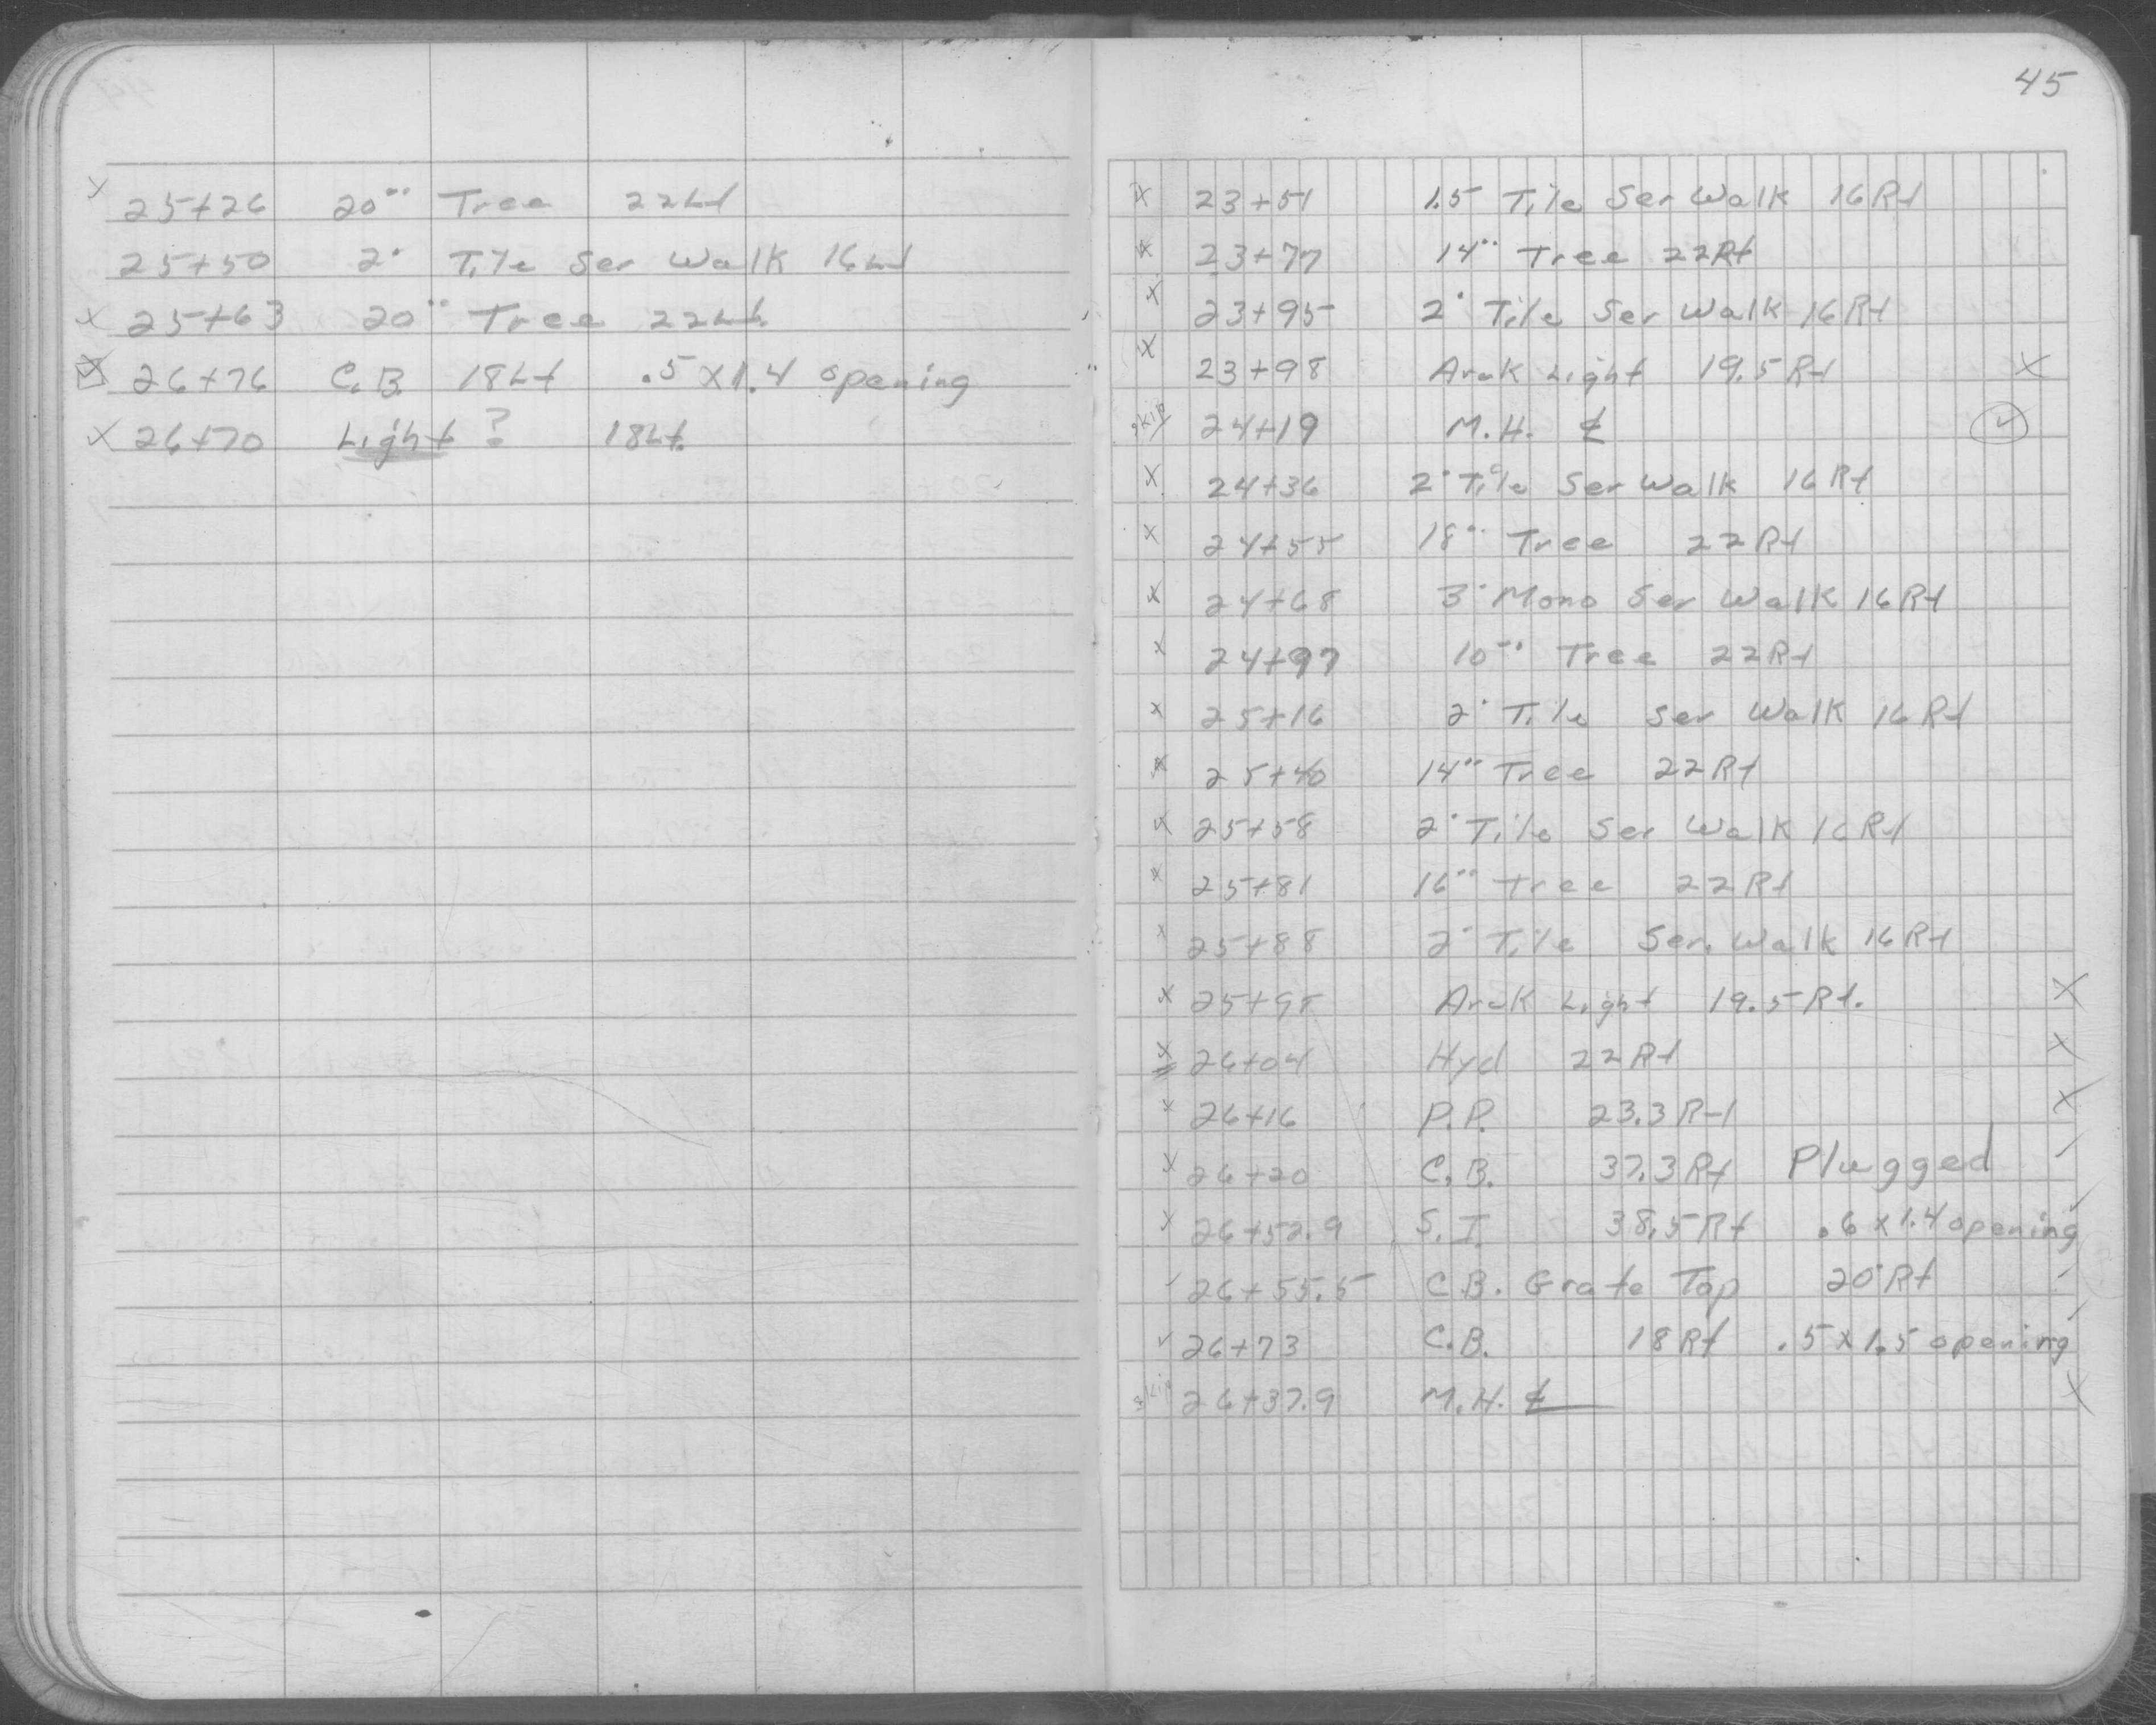 x 25+26 20" Tree 22Lt
25+50 2' Tile Ser Walk 16Lt
x 25+63 20" Tree 22Lt.
x 26+76 C.B. 18Lt .5 x 1.4 opening
x 26+70 Light ? 18Lt.
45
x 23+51 1.5 Tile Ser Walk 16Rt
x 23+77 14" Tree 22Rt
x 23+95 2' Tile Ser Walk 16Rt
x 23+98 Arck Light 19.5Rt x
skip 24+19 M.H. ₵ ✓
x 24+36 2' Tile Ser Walk 16Rt
x 24+55 18" Tree 22Rt
x 24+68 3' Mono Ser Walk 16Rt
x 24+97 10" Tree 22Rt
x 25+16 2' Tile Ser Walk 16Rt
x 25+40 14" Tree 22Rt
x 25+58 2' Tile Ser Walk 16Rt
x 25+81 16" Tree 22Rt
x 25+88 2' Tile Ser. Walk 16Rt
x 25+98 Arck Light 19.5Rt. x
x 26+04 Hyd 22Rt x
x 26+16 P.P. 23.3Rt x
x 26+20 C.B. 37.3Rt Plugged ✓
x 26+52.9 S.I. 38.5Rt .6 x 1.4 opening ✓
✓ 26+55.5 C.B. Grate Top 20'Rt ✓
✓ 26+73 C.B. 18Rt .5 x 1.5 opening ✓
skip 26+37.9 M.H. ₵ x